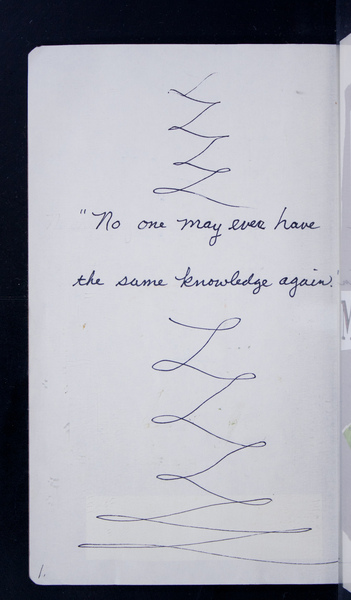 "No one may ever have
the same knowledge again."
1.